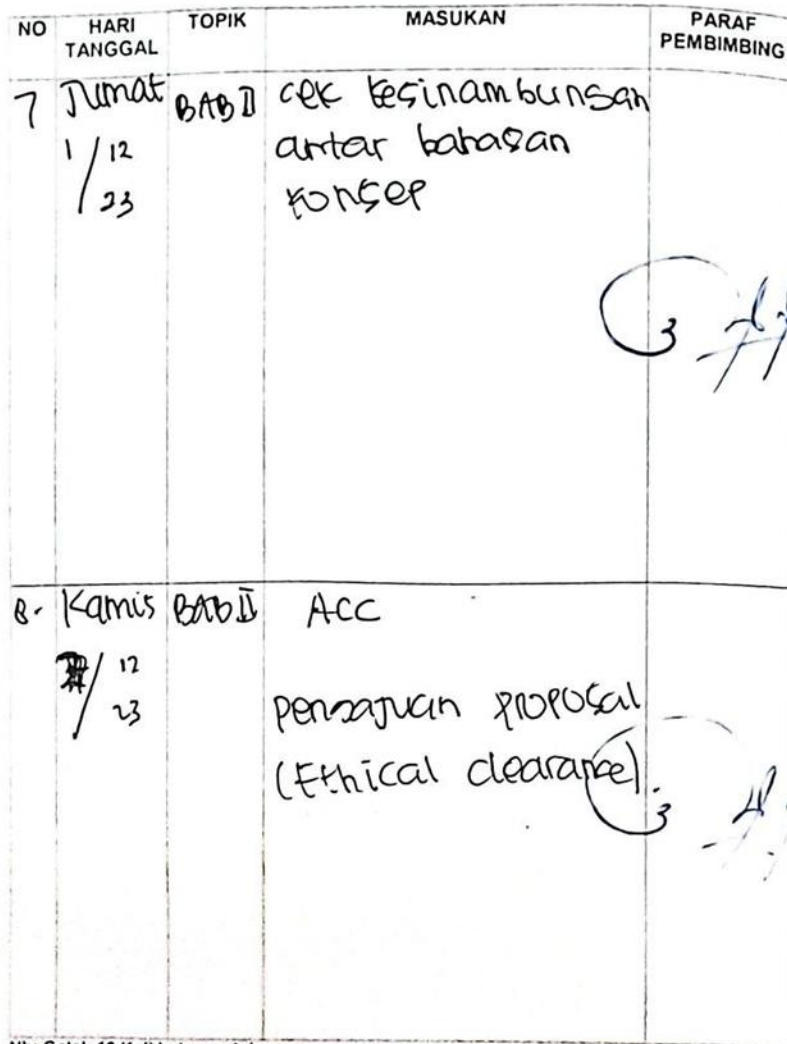 NO HARI TANGGAL TOPIK MASUKAN PARAF PEMBIMBING
7 Jumat BAB II cek kesinambungan
1/12 antar bahasan
23 konsep
8. Kamis BAB II ACC
/12
23 pengajuan proposal
(Ethical clearance).